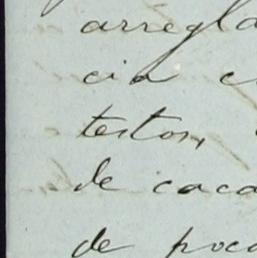 arregla
cia c
textos,
de caca
de poco